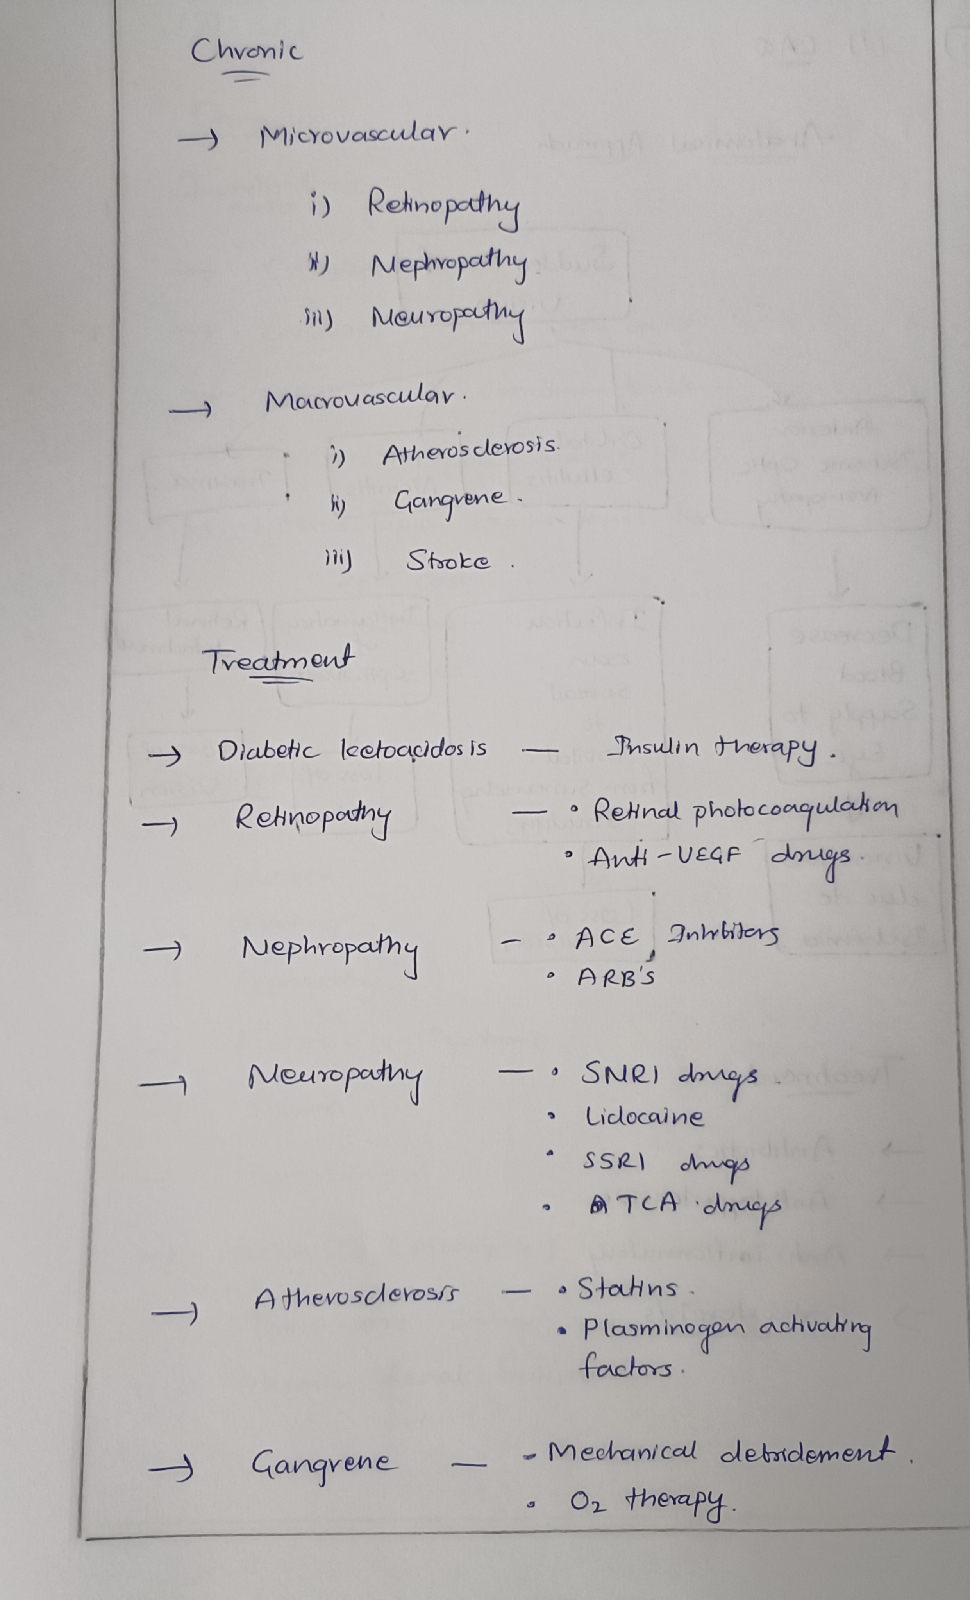 Chronic
→ Microvascular.
i) Retinopathy
ii) Nephropathy
iii) Neuropathy
→ Macrovascular.
i) Atherosclerosis.
ii) Gangrene.
iii) Stroke.
Treatment
→ Diabetic ketoacidosis — Insulin therapy.
→ Retinopathy — • Retinal photocoagulation
• Anti-VEGF drugs.
→ Nephropathy — • ACE Inhibitors
• ARB's
→ Neuropathy — • SNRI drugs.
• Lidocaine
• SSRI drugs
• TCA drugs
→ Atherosclerosis — • Statins.
• Plasminogen activating
factors.
→ Gangrene — - Mechanical debridement.
• O2 therapy.